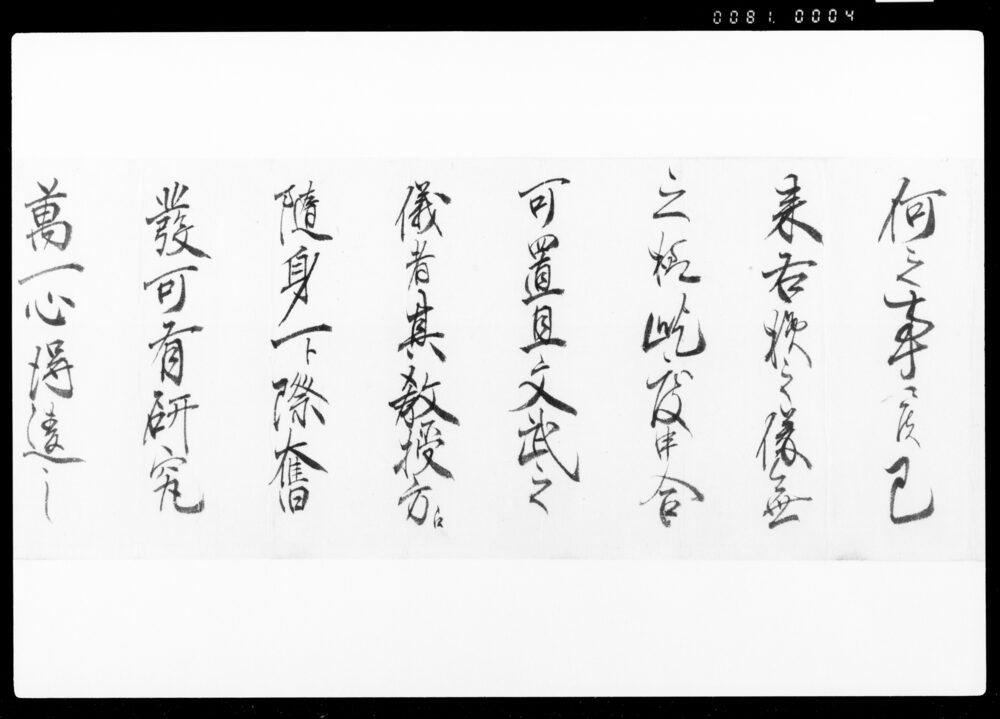 0081. 0004
何之事ニ候已
来右様之儀無
之様此度申合
可置且文武之
儀者其教授方
隨身一ト際奮
發可有研究
萬一心得違之